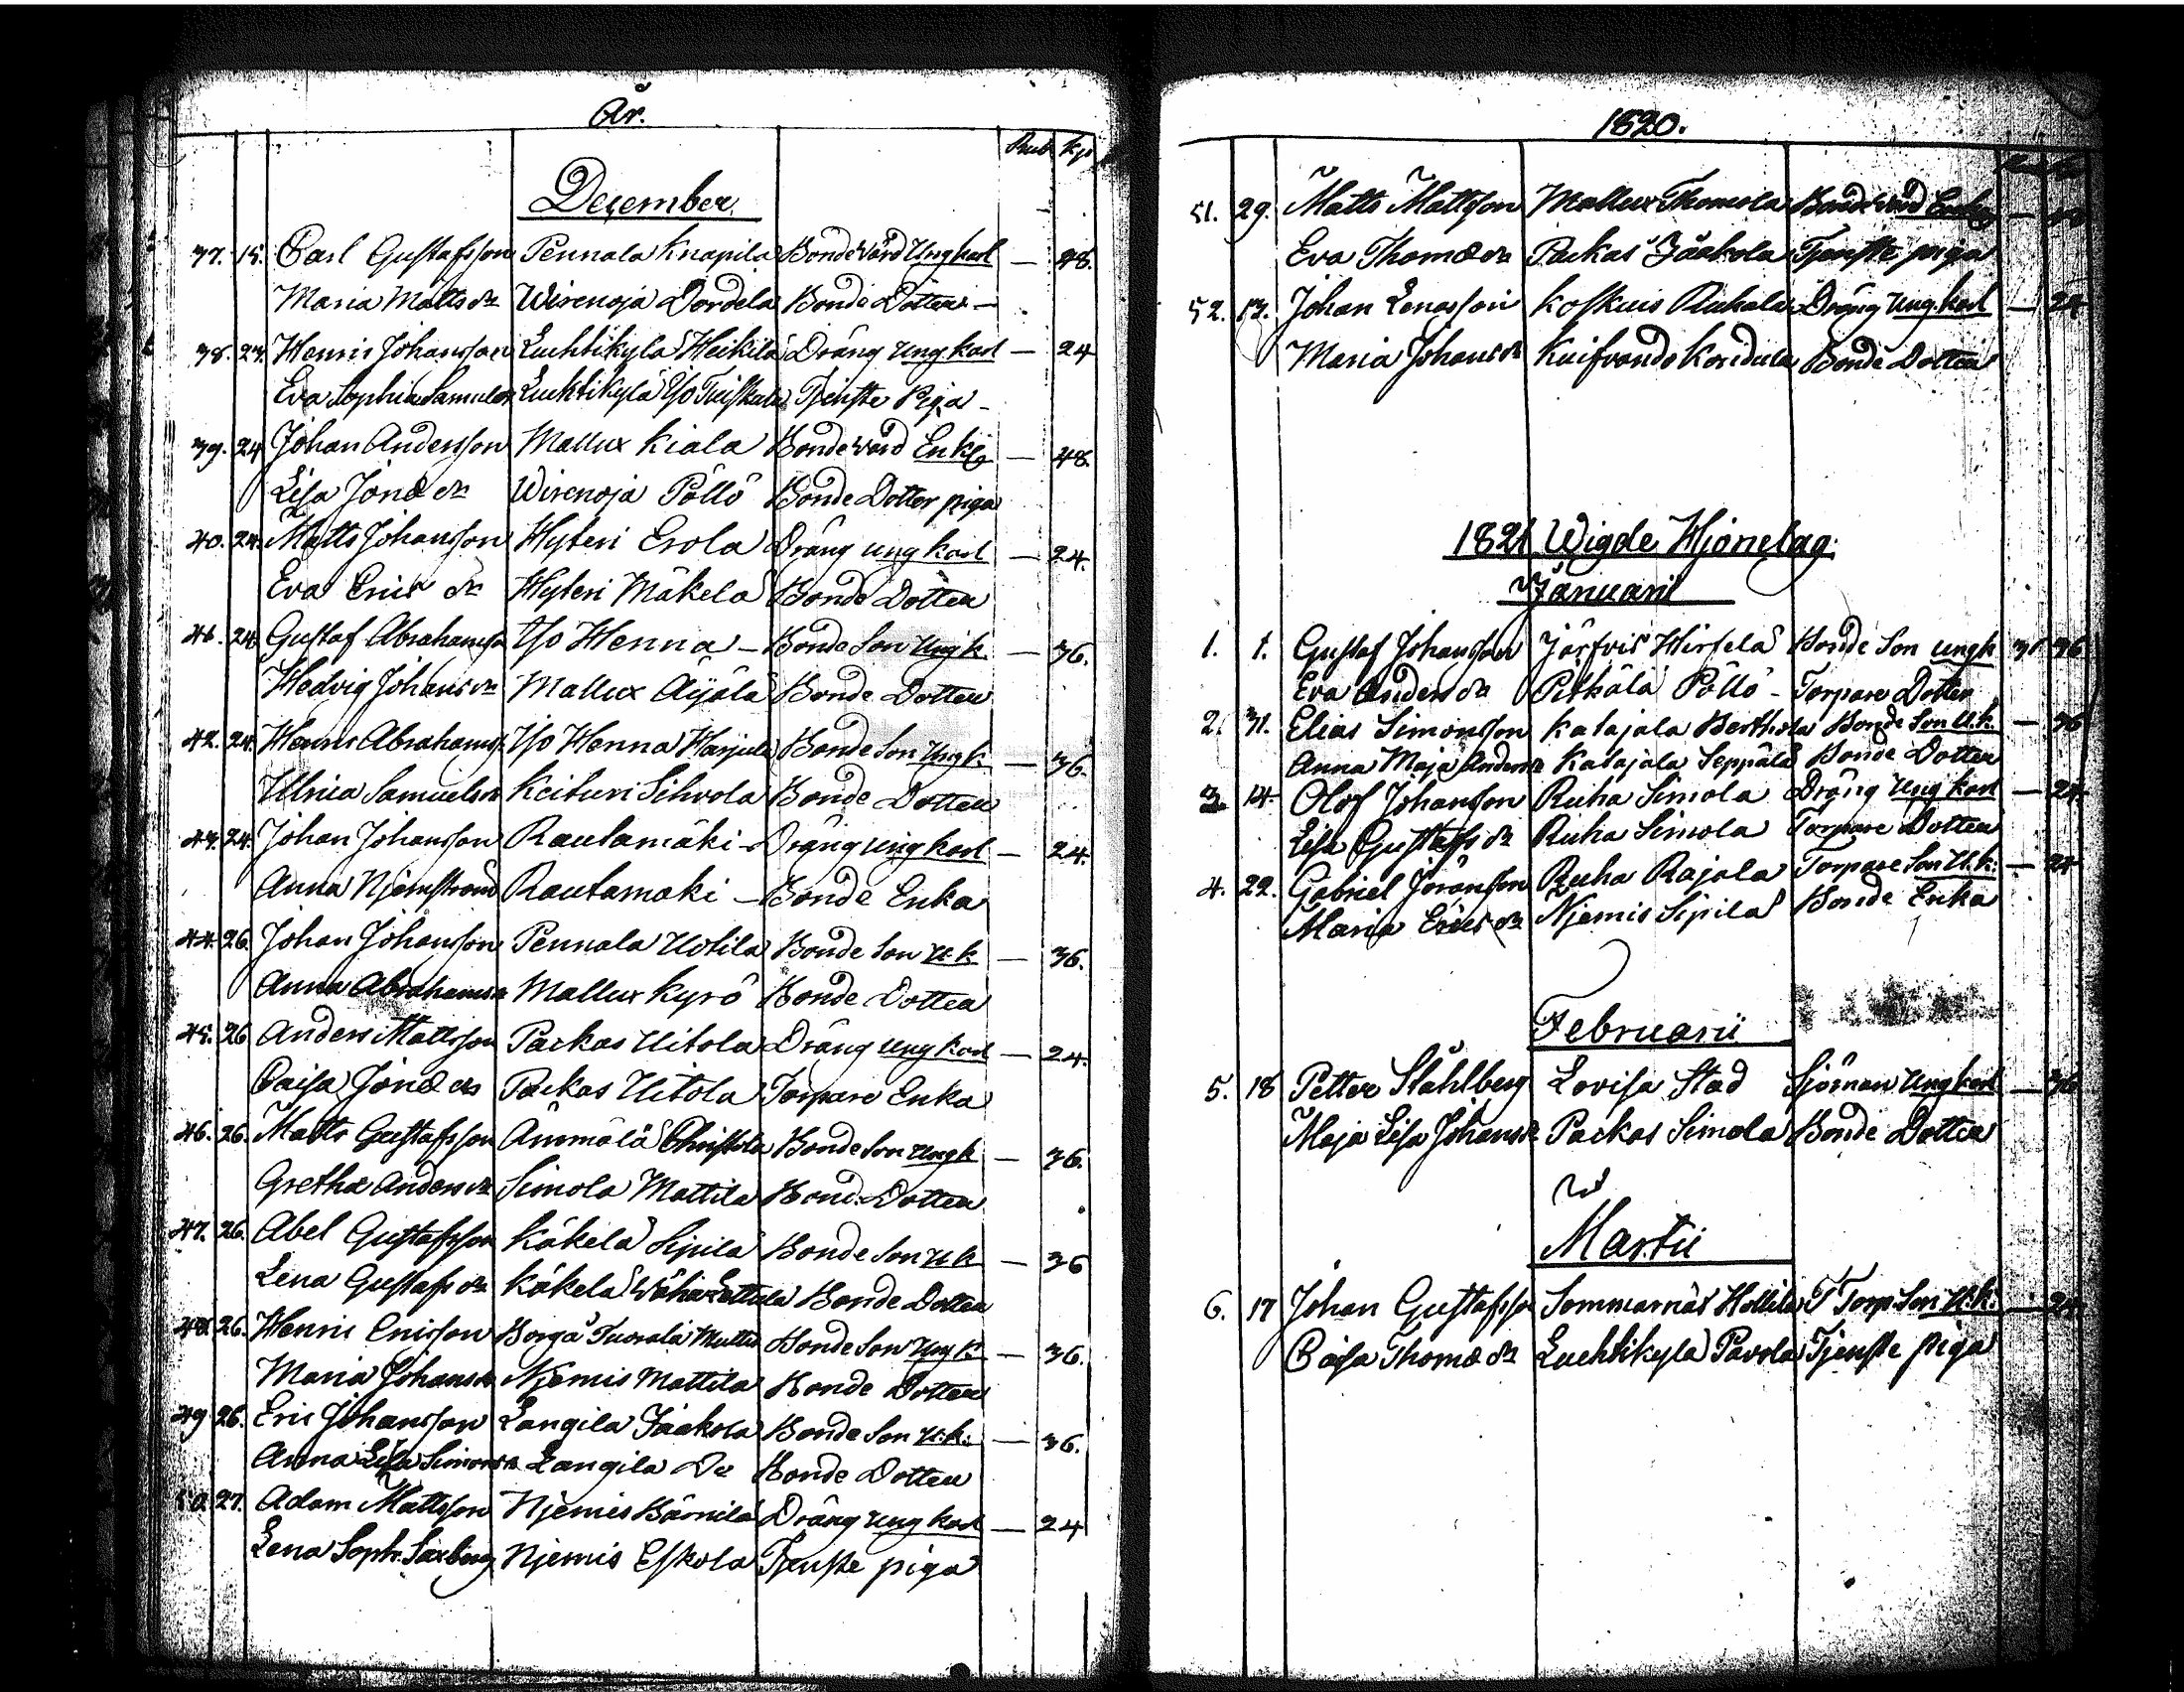 År.
Rub. kp.
December.
37. 15. Carl Gustafsson Pennala Knapila Bonde Värd Ung karl — 48.
Maria Matts dr Wirenoja Dordela Bonde Dotter —
38. 23. Henric Johansson Luchtikylä Heikilä Dräng Ung karl — 24
Eva Sophia Samuels dr Luchtikylä Yso Tuiskula Tjenste Piga —
39. 24 Johan Andersson Mallux Kiala Bonde värd Enkl — 48.
Lisa Jonæ dr Wirenoja Pöllö Bonde Dotter piga
40. 24. Matts Johansson Hyteri Erola Dräng ung karl — 24.
Eva Erics dr Hyteri Mäkelä Bonde Dotter
41. 24. Gustaf Abrahamss Yso Henna — Bonde Son Ung k. — 36.
Hedvig Johans dr Mallux Äijälä Bonde Dotter
42. 24. Henric Abrahamss. Yso Henna Harjula Bonde Son Ung k. — 36.
Ulrica Samuels dr Keituri Sihvola Bonde Dotter
43. 24. Johan Johansson Rautamäki — Dräng Ung karl — 24.
Anna Njemström Rautamäki — Bonde Enka
44. 26. Johan Johansson Pennala Uotila Bonde Son U. k. — 36.
Anna Abrahams dr Mallux Kyrö Bonde Dotter
45. 26 Anders Mattsson Packas Uitola Dräng Ung karl — 24.
Caisa Jonæ dr Packas Uitola Torpare Enka
46. 26. Matts Gustafsson Ämmälä Christola Bonde Son Ung k — 36.
Gretha Anders dr Simola Mattila Bond. Dotter
47. 26. Abel Gustafsson Käkelä Sipilä Bonde Son U. k — 36
Lena Gustafs dr Käkelä Wäha Lottula Bonde Dotter
48. 26. Henric Ericsson Borgå Tuorala Bonde Son Ung k. — 36.
Maria Johans dr Njemis Mattila Bonde Dotter
49 26. Eric Johansson Langila Jaakola Bonde Son U: k: — 36.
Anna Lisa Simons dr Langila Do Bonde Dotter
50. 27. Adam Mattsson Njemis Bärnilä Dräng Ung karl — 24
Lena Soph. Saxberg Njemis Eskola Tjenste piga
1820.
51. 29. Matts Mattsson Mallux Thomola Bonde värd Enkl —
Eva Thomæ dr Packas Jaakola Tjenste piga
52. Johan Lenasson Koskuis Dräng Ung. karl — 24
Maria Johans dr Kuifvando Kordula Bonde Dotter
1821 Wigde Hjonelag.
Januarii
1. 1. Gustaf Johansson Järfvis Hirfelä Bonde Son Ung k 36
Eva Anders dr Pitkälä Pöllö — Torpare Dotter
2. 31. Elias Simonsson Katajala Berthola Bonde Son U. k. — 36
Anna Maja Anders dr Katajala Seppälä Bonde Dotter
3. 14. Olof Johansson Ruha Simola Dräng Ung karl — 24.
Lisa Gustafs dr Ruha Simola Torpare Dotter
4. 22. Gabriel Göransson Ruha Rajala Torpare Son U. k. — 24
Maria Erics dr Njemis Sipilä Bonde Enka
Februarii
5. 18 Petter Ståhlberg Lovisa Stad Sjöman Ung karl — 36
Maja Lisa Johans dr Packas Simola Bonde Dotter
Martii
6. 17 Johan Gustafsson Sommarnäs Hollila T Torp. Son U: k: — 24.
Caisa Thomæ dr Luchtikylä Pavola Tjenste piga